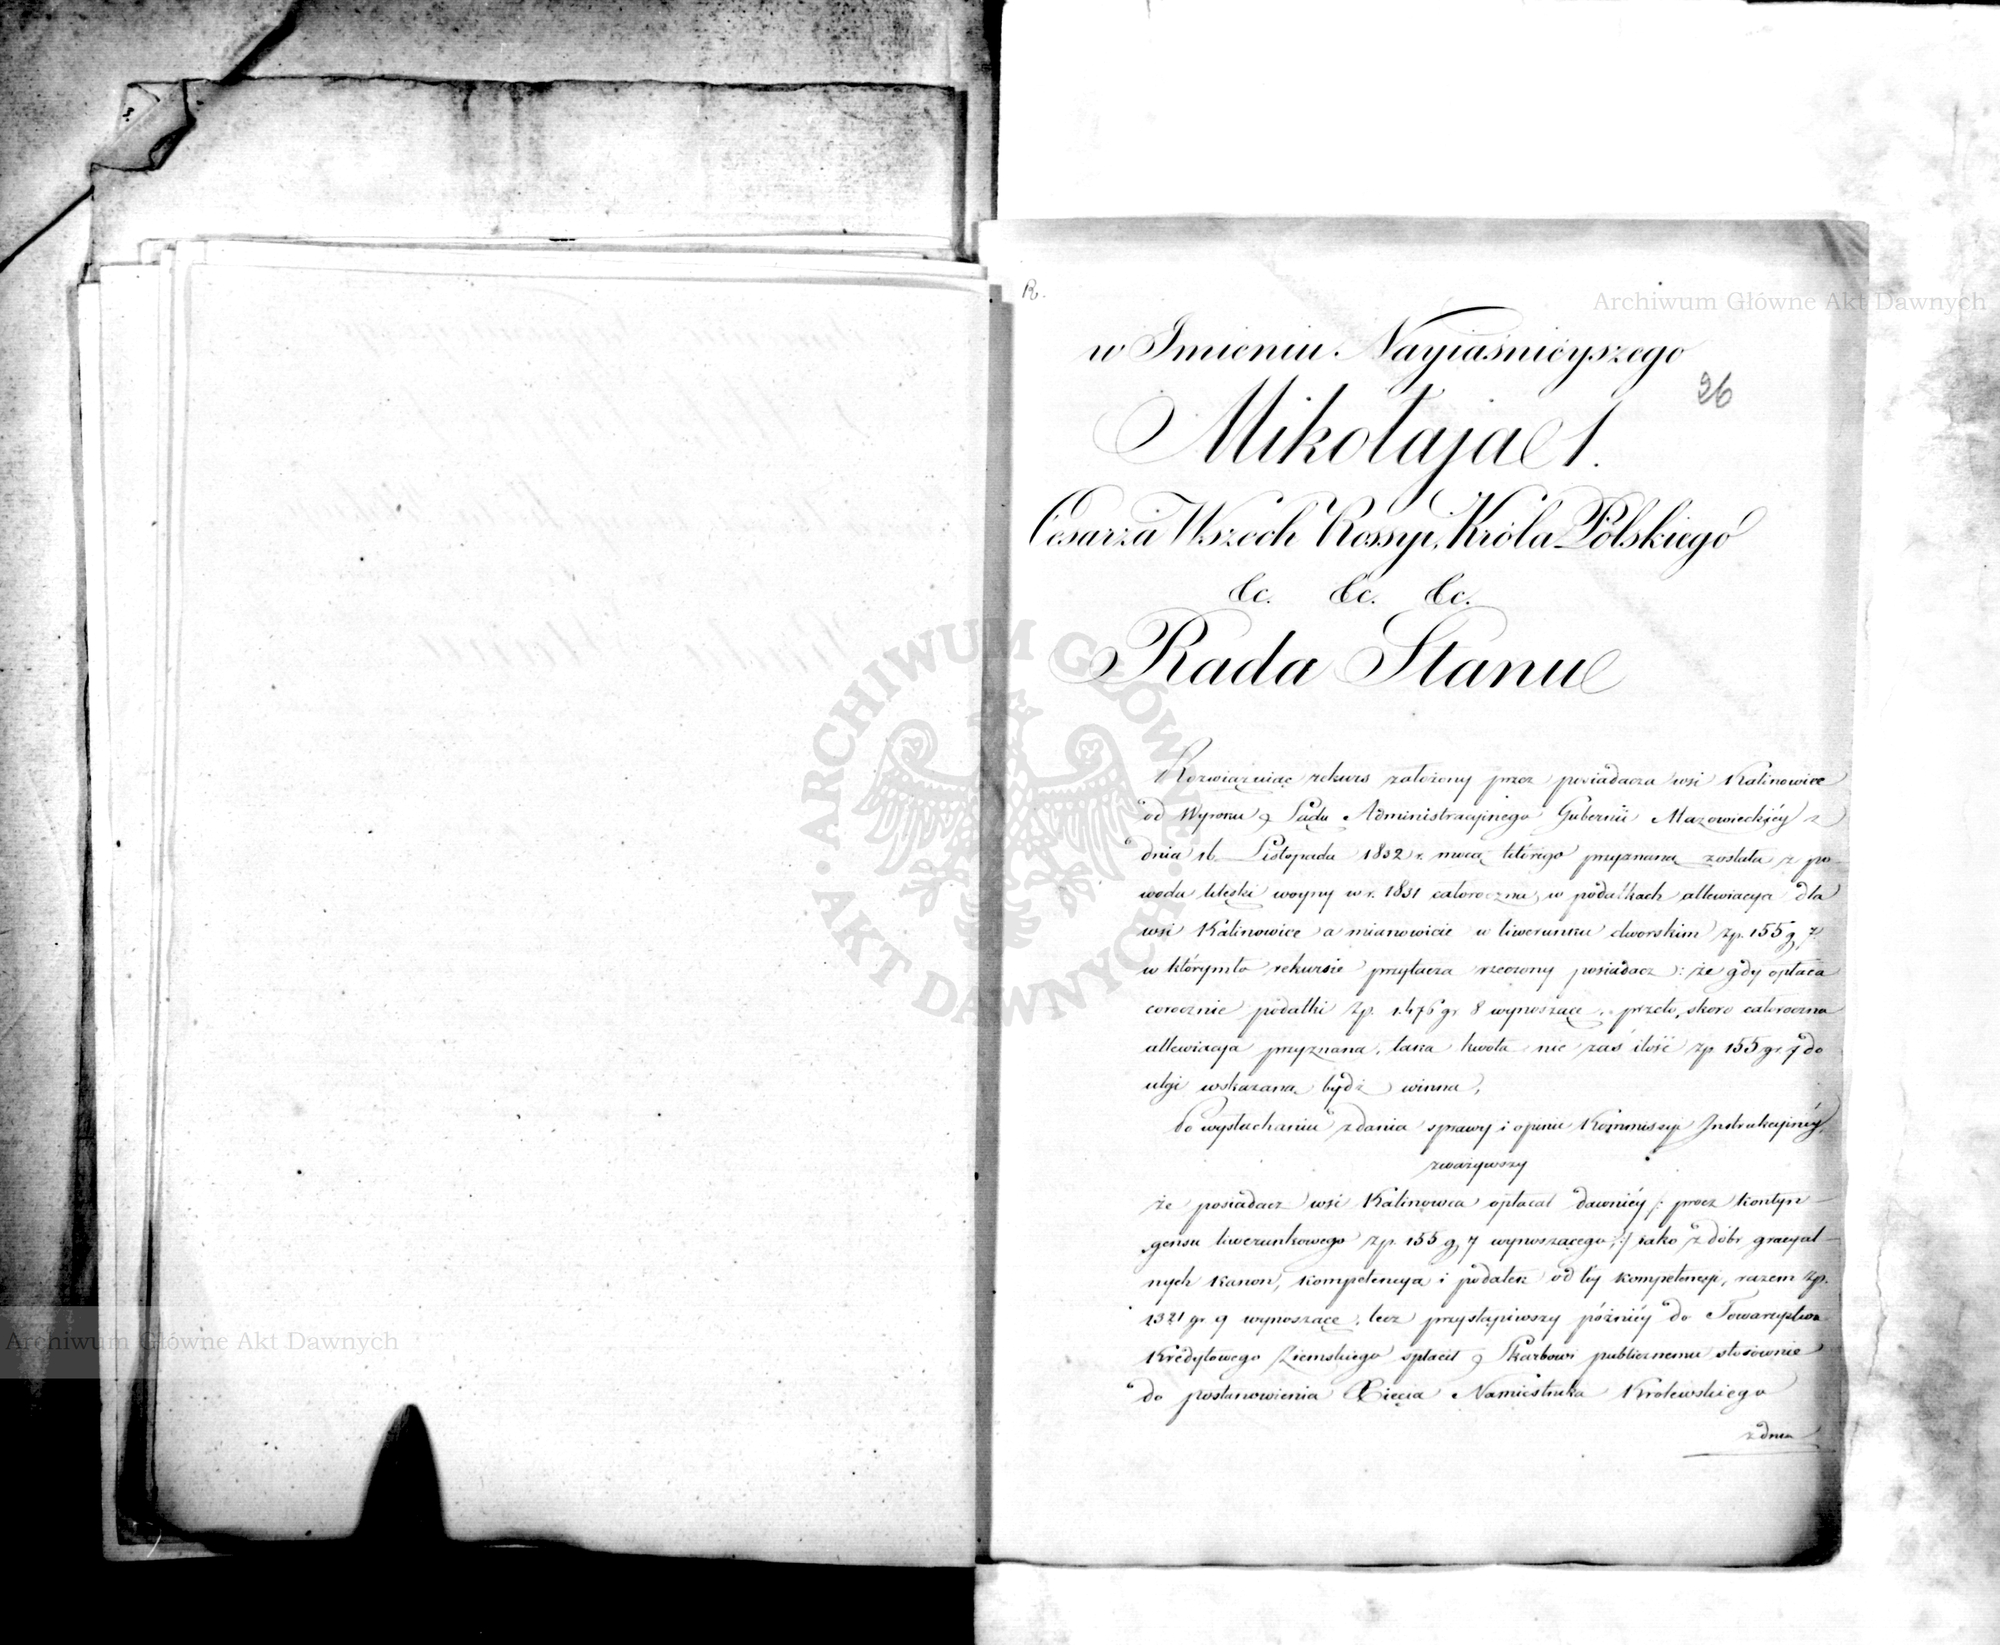 R.
26
w Imieniu Nayiaśnieyszego
Mikołaja 1.
Cesarza Wszech Rossyi, Króla Polskiego
&c. &c. &c.
Rada Stanu
Rozwiązuiąc rekurs założony przez posiadacza wsi Kalinowice
od Wyroku Sądu Administracyjnego Gubernii Mazowieckiéy z
dnia 16 Listopada 1832 r. mocą którego przyznaną została z po-
wodu klęski woyny w r. 1831 całoroczna, w podatkach allewiacya dla
wsi Kalinowice a mianowicie w liwerunku dworskim zp. 155 g. 7.
w którymto rekursie przytacza rzeczony posiadacz: że gdy opłaca
corocznie podatki zp. 1476 gr 8 wynoszące, przeto, skoro całoroczna
allewiacja przyznana, taka kwota nie zaś ilość zp. 155 gr. 7 do
ulgi wskazana bydź winna,
Po wysłuchaniu zdania sprawy i opinii Kommissyi Instrukcyinéy,
zważywszy
że posiadacz wsi Kalinowca opłacał dawniéy /: prócz kontyn-
gensu liwerunkowego zp. 155 g. 7 wynoszącego, :/ iako z dóbr gracyal-
nych kanon, kompetencya i podatek od téy kompetencyi, razem zp.
1321 gr. 9 wynoszące, lecz przystąpiwszy późniéy do Towarzystwa
Kredytowego Ziemskiego spłacił Skarbowi publicznemu stosownie
do postanowienia Xięcia Namiestnika Królewskiego
z dnia
ARCHIWUM GŁÓWNE AKT DAWNYCH
Archiwum Główne Akt Dawnych
Archiwum Główne Akt Dawnych